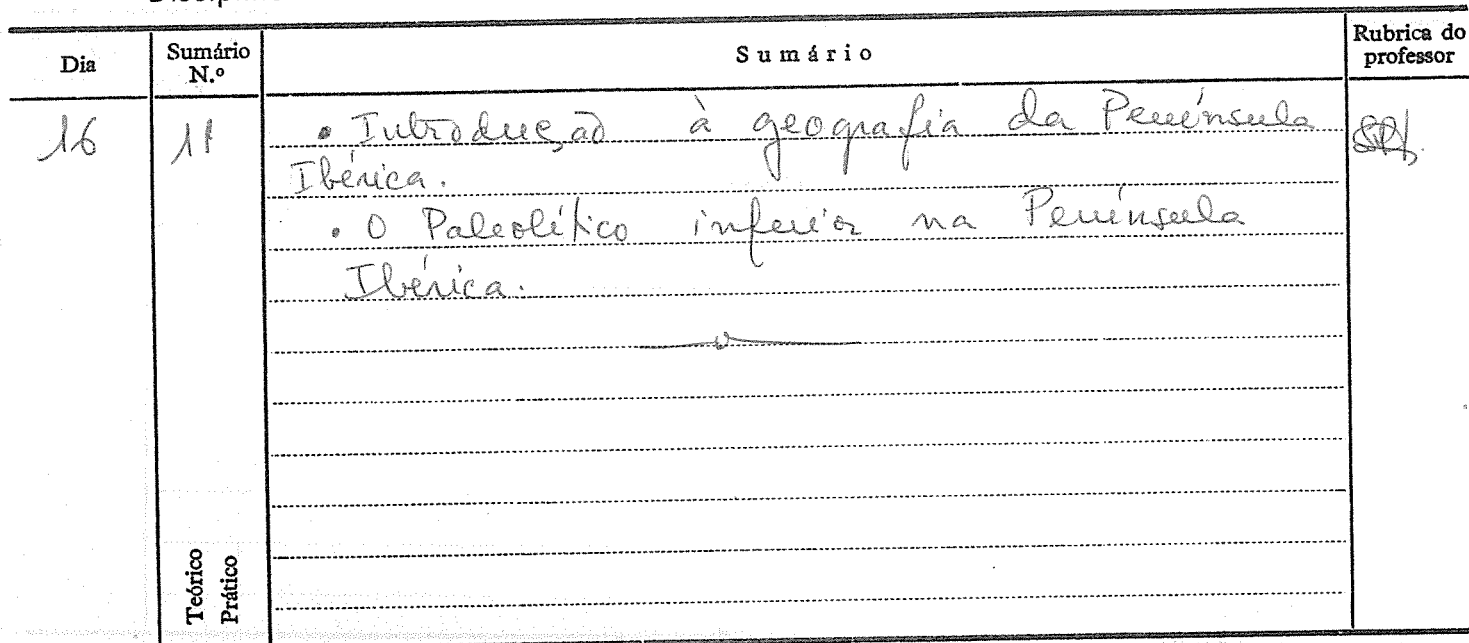 Dia
Sumário N.º
Sumário
Rubrica do professor
16
11
• Introdução à geografia da Península
Ibérica.
• O Paleolítico inferior na Península
Ibérica.
Teórico
Prático